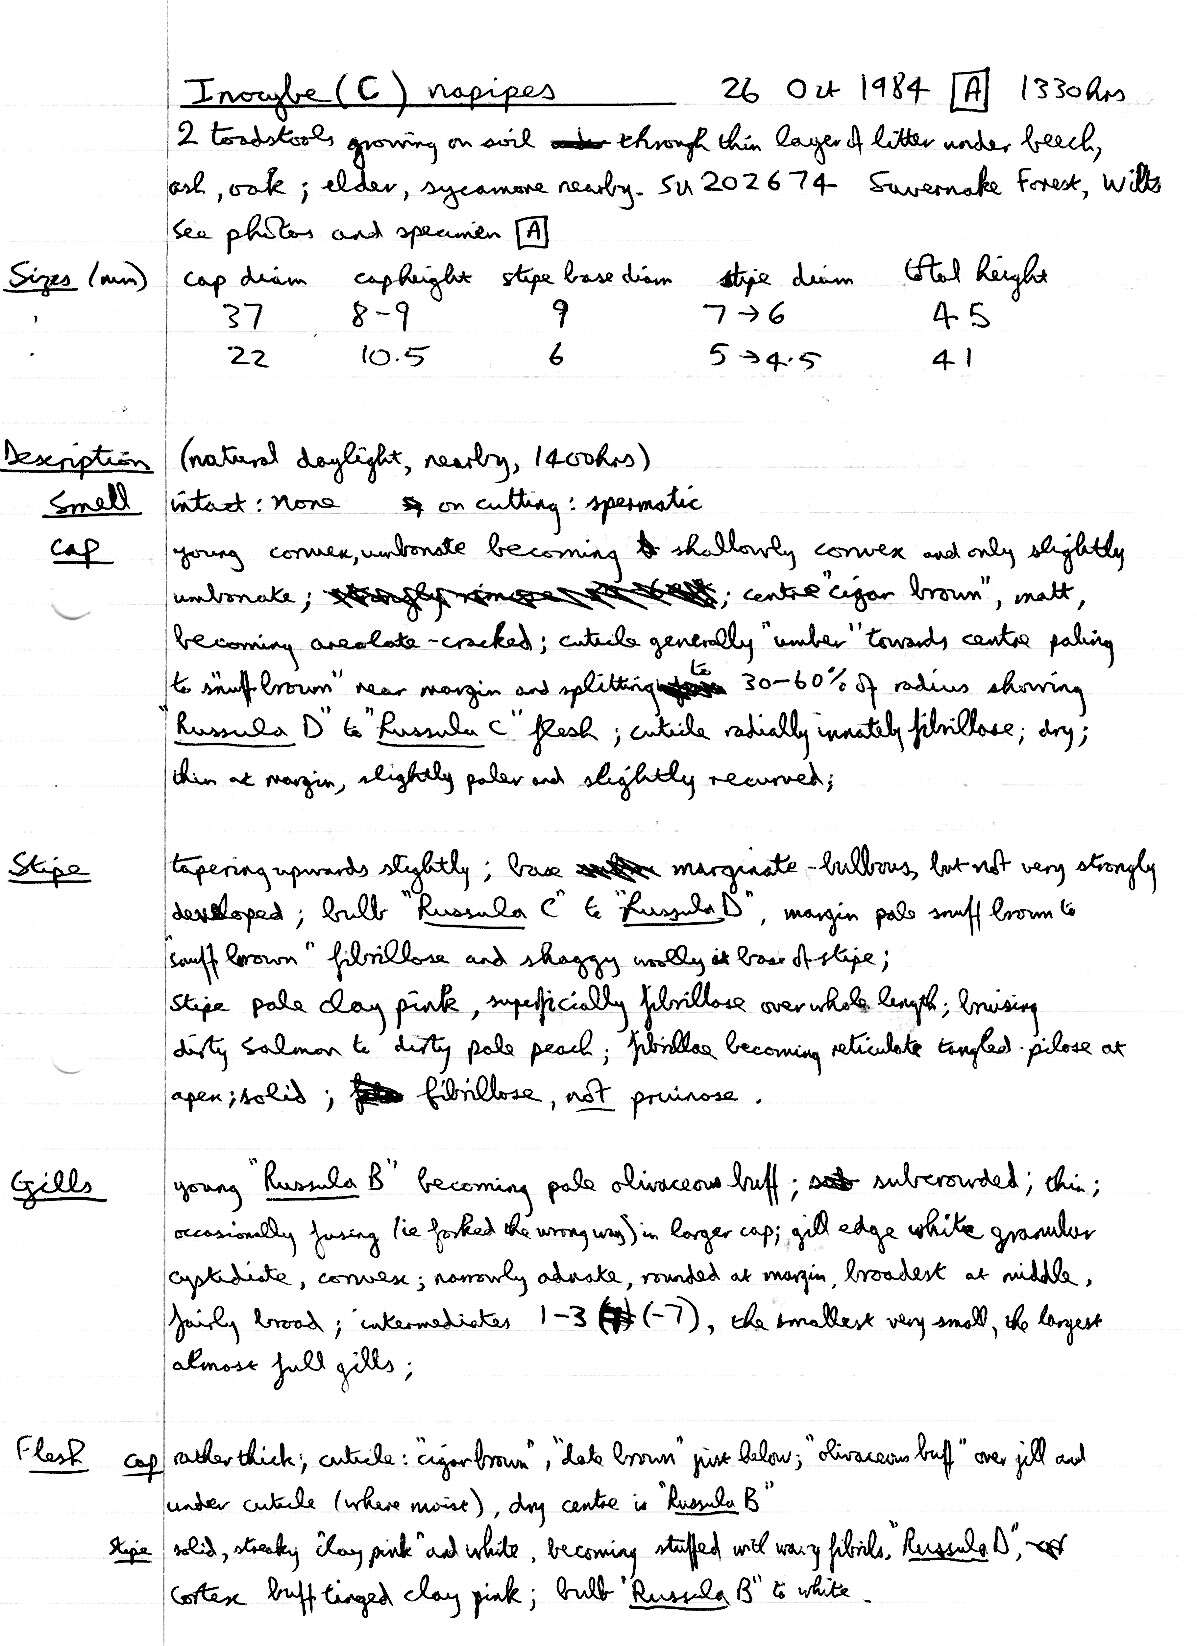 Inocybe (C) napipes 26 Oct 1984 [A] 1330hrs
2 toadstools growing on soil through thin layer of litter under beech,
ash, oak; elder, sycamore nearby. SU 202674 Savernake Forest, Wilts
See photos and specimen [A]
Sizes (mm) cap diam cap height stipe base diam stipe diam total height
37 8-9 9 7→6 45
22 10.5 6 5→4.5 41
Description (natural daylight, nearby, 1400hrs)
Smell intact: none on cutting: spermatic
Cap young convex, umbonate becoming shallowly convex and only slightly
umbonate; ; centre "cigar brown", matt,
becoming areolate-cracked; cuticle generally "umber" towards centre paling
to "snuff brown" near margin and splitting to 30-60% of radius showing
"Russula D" to "Russula C" flesh; cuticle radially innately fibrillose; dry;
thin at margin, slightly paler and slightly recurved;
Stipe tapering upwards slightly; base marginate-bulbous, but not very strongly
developed; bulb "Russula C" to "Russula D", margin pale snuff brown to
"snuff brown" fibrillose and shaggy woolly at base of stipe;
stipe pale clay pink, superficially fibrillose over whole length; bruising
dirty salmon to dirty pale peach; fibrillae becoming reticulate tangled-pilose at
apex; solid; fibrillose, not pruinose.
Gills young "Russula B" becoming pale olivaceous buff; subcrowded; thin;
occasionally fusing (ie forked the wrong way) in larger cap; gill edge white granular
cystidiate, convex; narrowly adnate, rounded at margin, broadest at middle,
fairly broad; intermediates 1-3 (-7), the smallest very small, the largest
almost full gills;
Flesh cap rather thick; cuticle: "cigar brown", "date brown" just below; "olivaceous buff" over gill and
under cuticle (where moist), dry centre is "Russula B"
stipe solid, streaky "clay pink" and white, becoming stuffed with wavy fibrils, "Russula D",
cortex buff tinged clay pink; bulb "Russula B" to white.